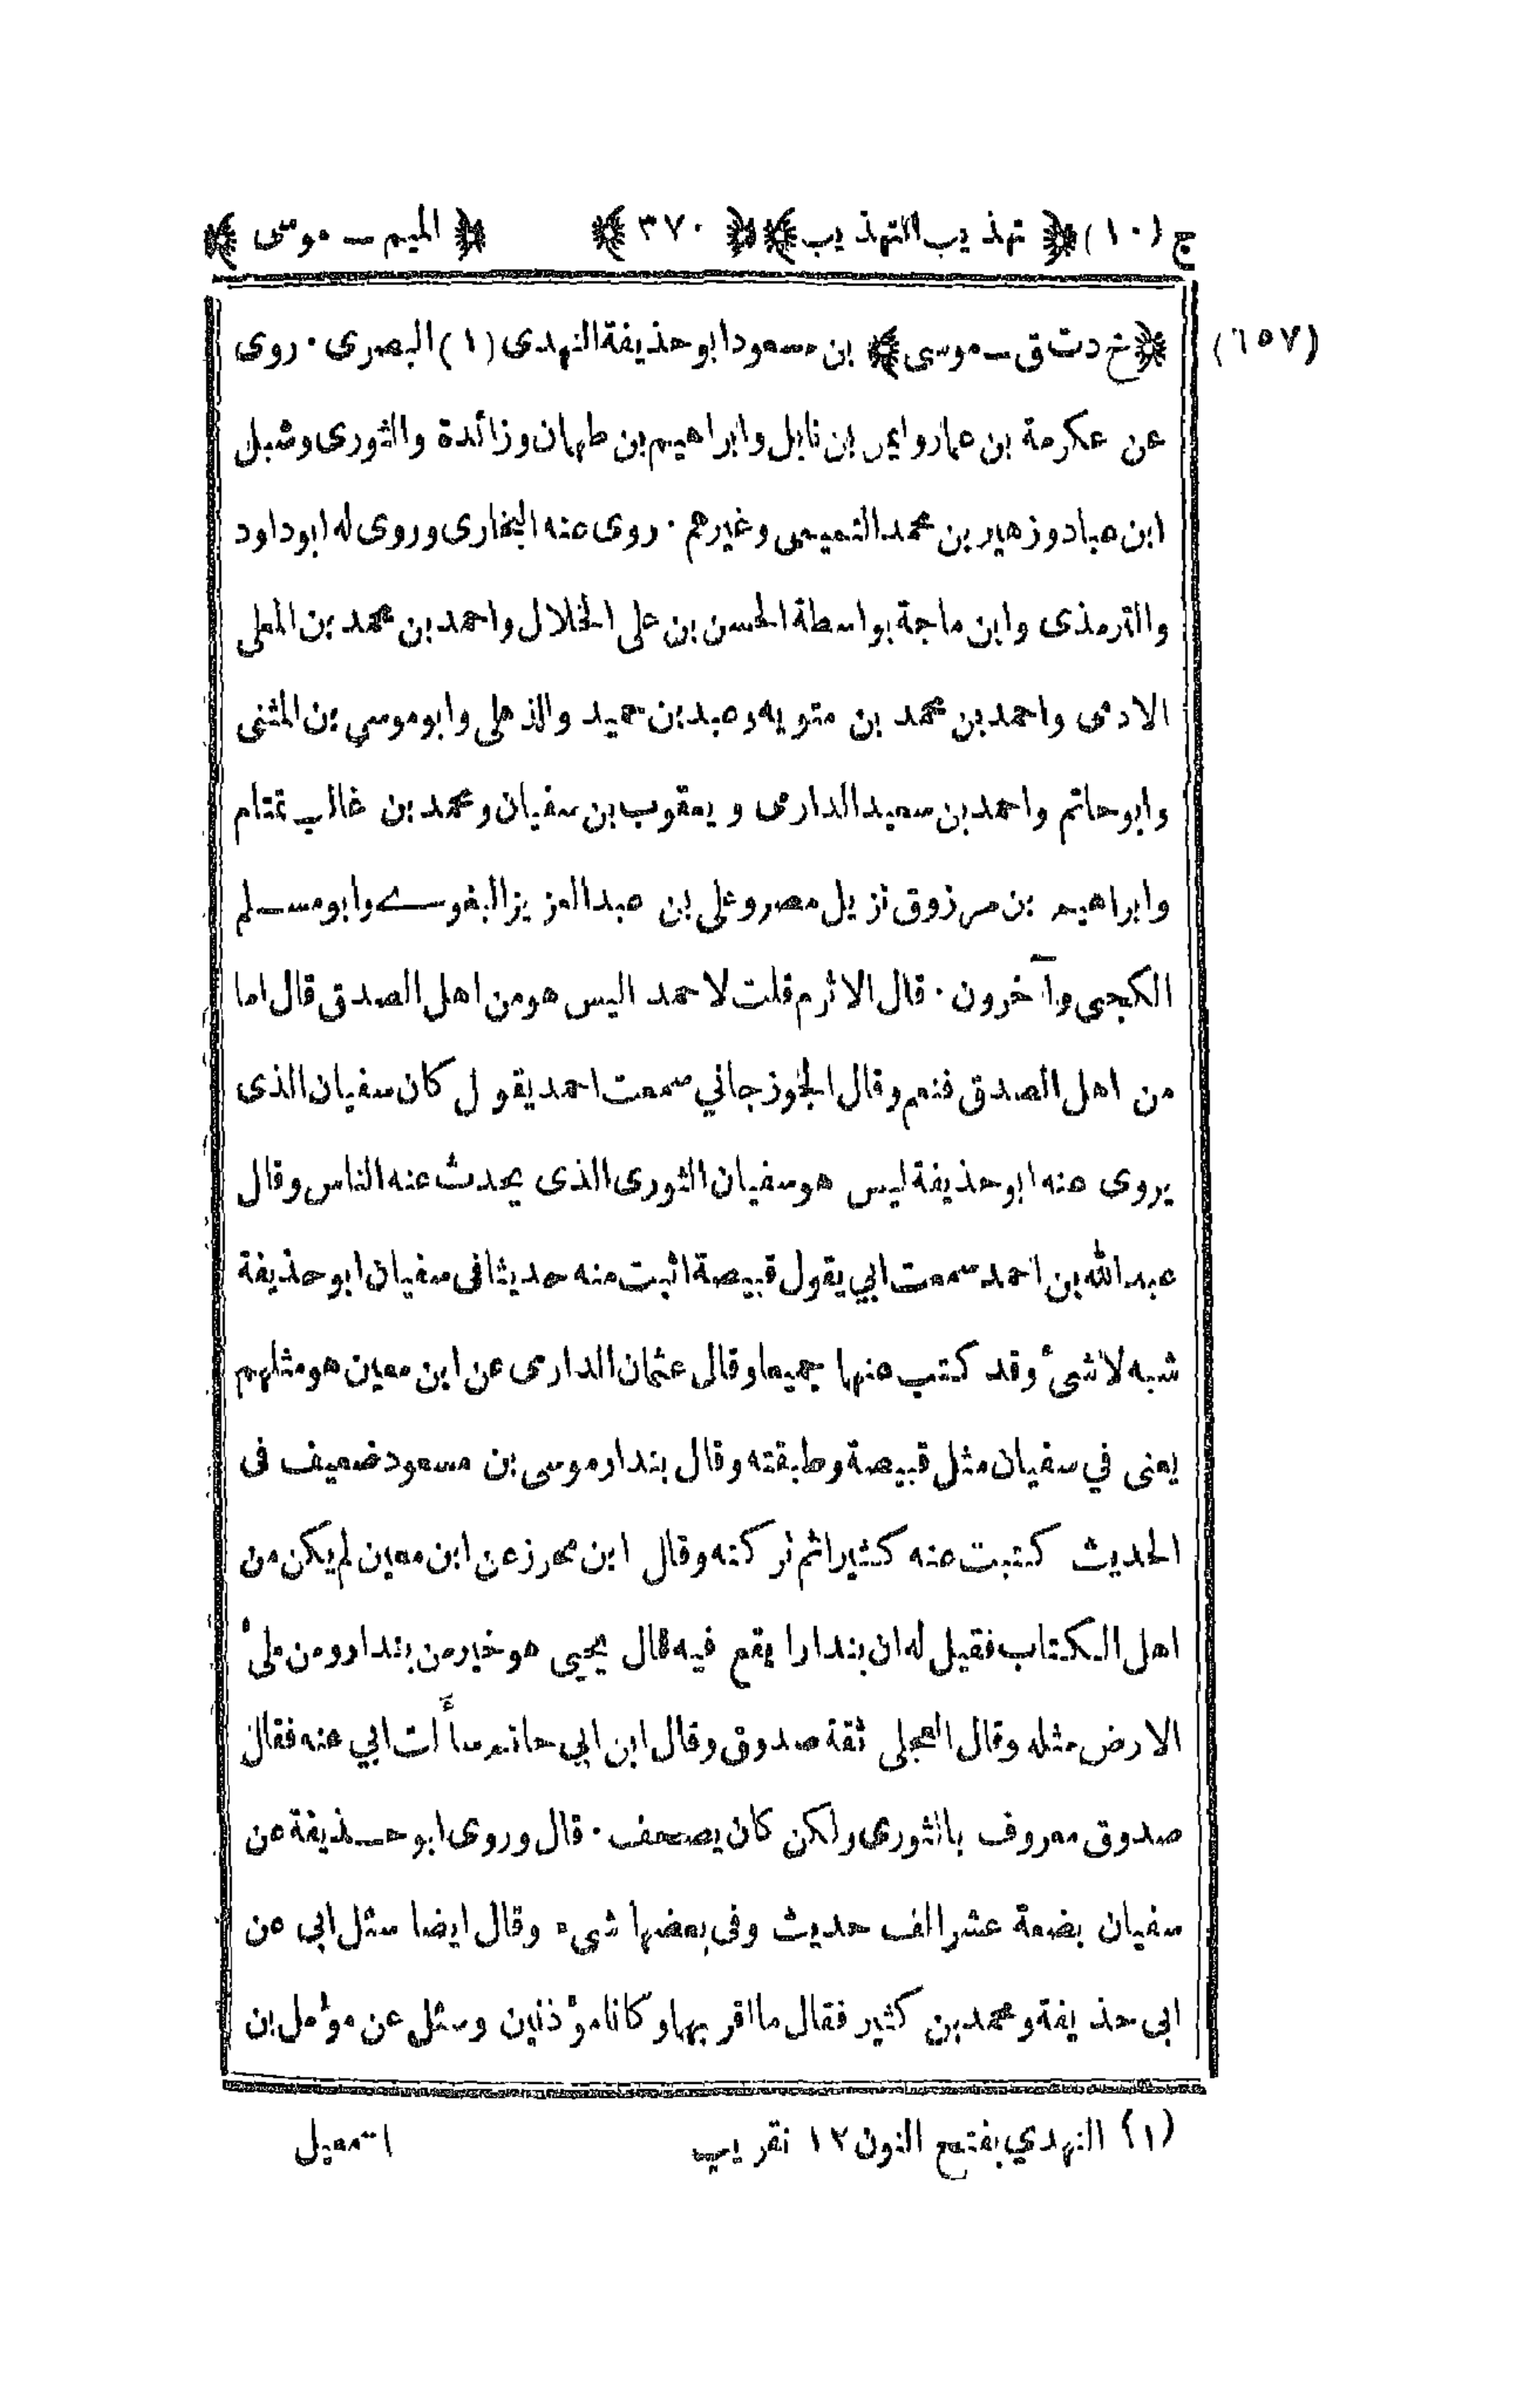 ج (١٠) ﴿ تهذيب التهذيب ﴾ ﴿ ٣٧٠ ﴾ ﴿ الميم ــ موسى ﴾
(٦٥٧)
﴿ خ د ت ق ــ موسى ﴾ بن مسعود ابو حذيفة النهدى (١) البصرى . روى
عن عكرمة بن عمار وايمن بن نابل وابراهيم بن طهمان وزائدة والثورى وشبل
ابن عباد وزهير بن محمد التميمى وغيرهم . روى عنه البخارى وروى له ابو داود
والترمذى وابن ماجة بواسطة الحسن بن على الخلال واحمد بن محمد بن المعلى
الادمى واحمد بن محمد بن متويه وعبد بن حميد والذهلى وابو موسي بن المثنى
وابو حاتم واحمد بن سعيد الدارمى ويعقوب بن سفيان ومحمد بن غالب تمتام
وابراهيم بن مرزوق نزيل مصر وعلى بن عبد العزيز البغوے وابو مسلم
الكجى وآخرون . قال الاثرم قلت لاحمد اليس هو من اهل الصدق قال اما
من اهل الصدق فنعم وقال الجوزجاني سمعت احمد يقول كان سفيان الذى
يروى عنه ابو حذيفة ليس هو سفيان الثورى الذى يحدث عنه الناس وقال
عبد الله بن احمد سمعت ابي يقول قبيصة اثبت منه حديثا فى سفيان ابو حذيفة
شبه لا شئ وقد كتب عنهما جميعا وقال عثمان الدارمى عن ابن معين هو مثلهم
يعنى في سفيان مثل قبيصة وطبقته وقال بندار موسى بن مسعود ضعيف فى
الحديث كتبت عنه كثيرا ثم تركته وقال ابن محرز عن ابن معين لم يكن من
اهل الكتاب فقيل له ان بندارا يقع فيه قال يحيى هو خير من بندار ومن ملئ
الارض مثله وقال العجلى ثقة صدوق وقال ابن ابي حاتم سألت ابي عنه فقال
صدوق معروف بالثورى ولكن كان يصحف . قال وروى ابو حذيفة عن
سفيان بضعة عشر الف حديث وفى بعضها شيء وقال ايضا سئل ابي عن
ابى حذيفة ومحمد بن كثير فقال ما اقربهما وكانا مؤذنين وسئل عن مؤمل بن
(١) النهدي بفتح النون ١٢ تقريب
اسمعيل